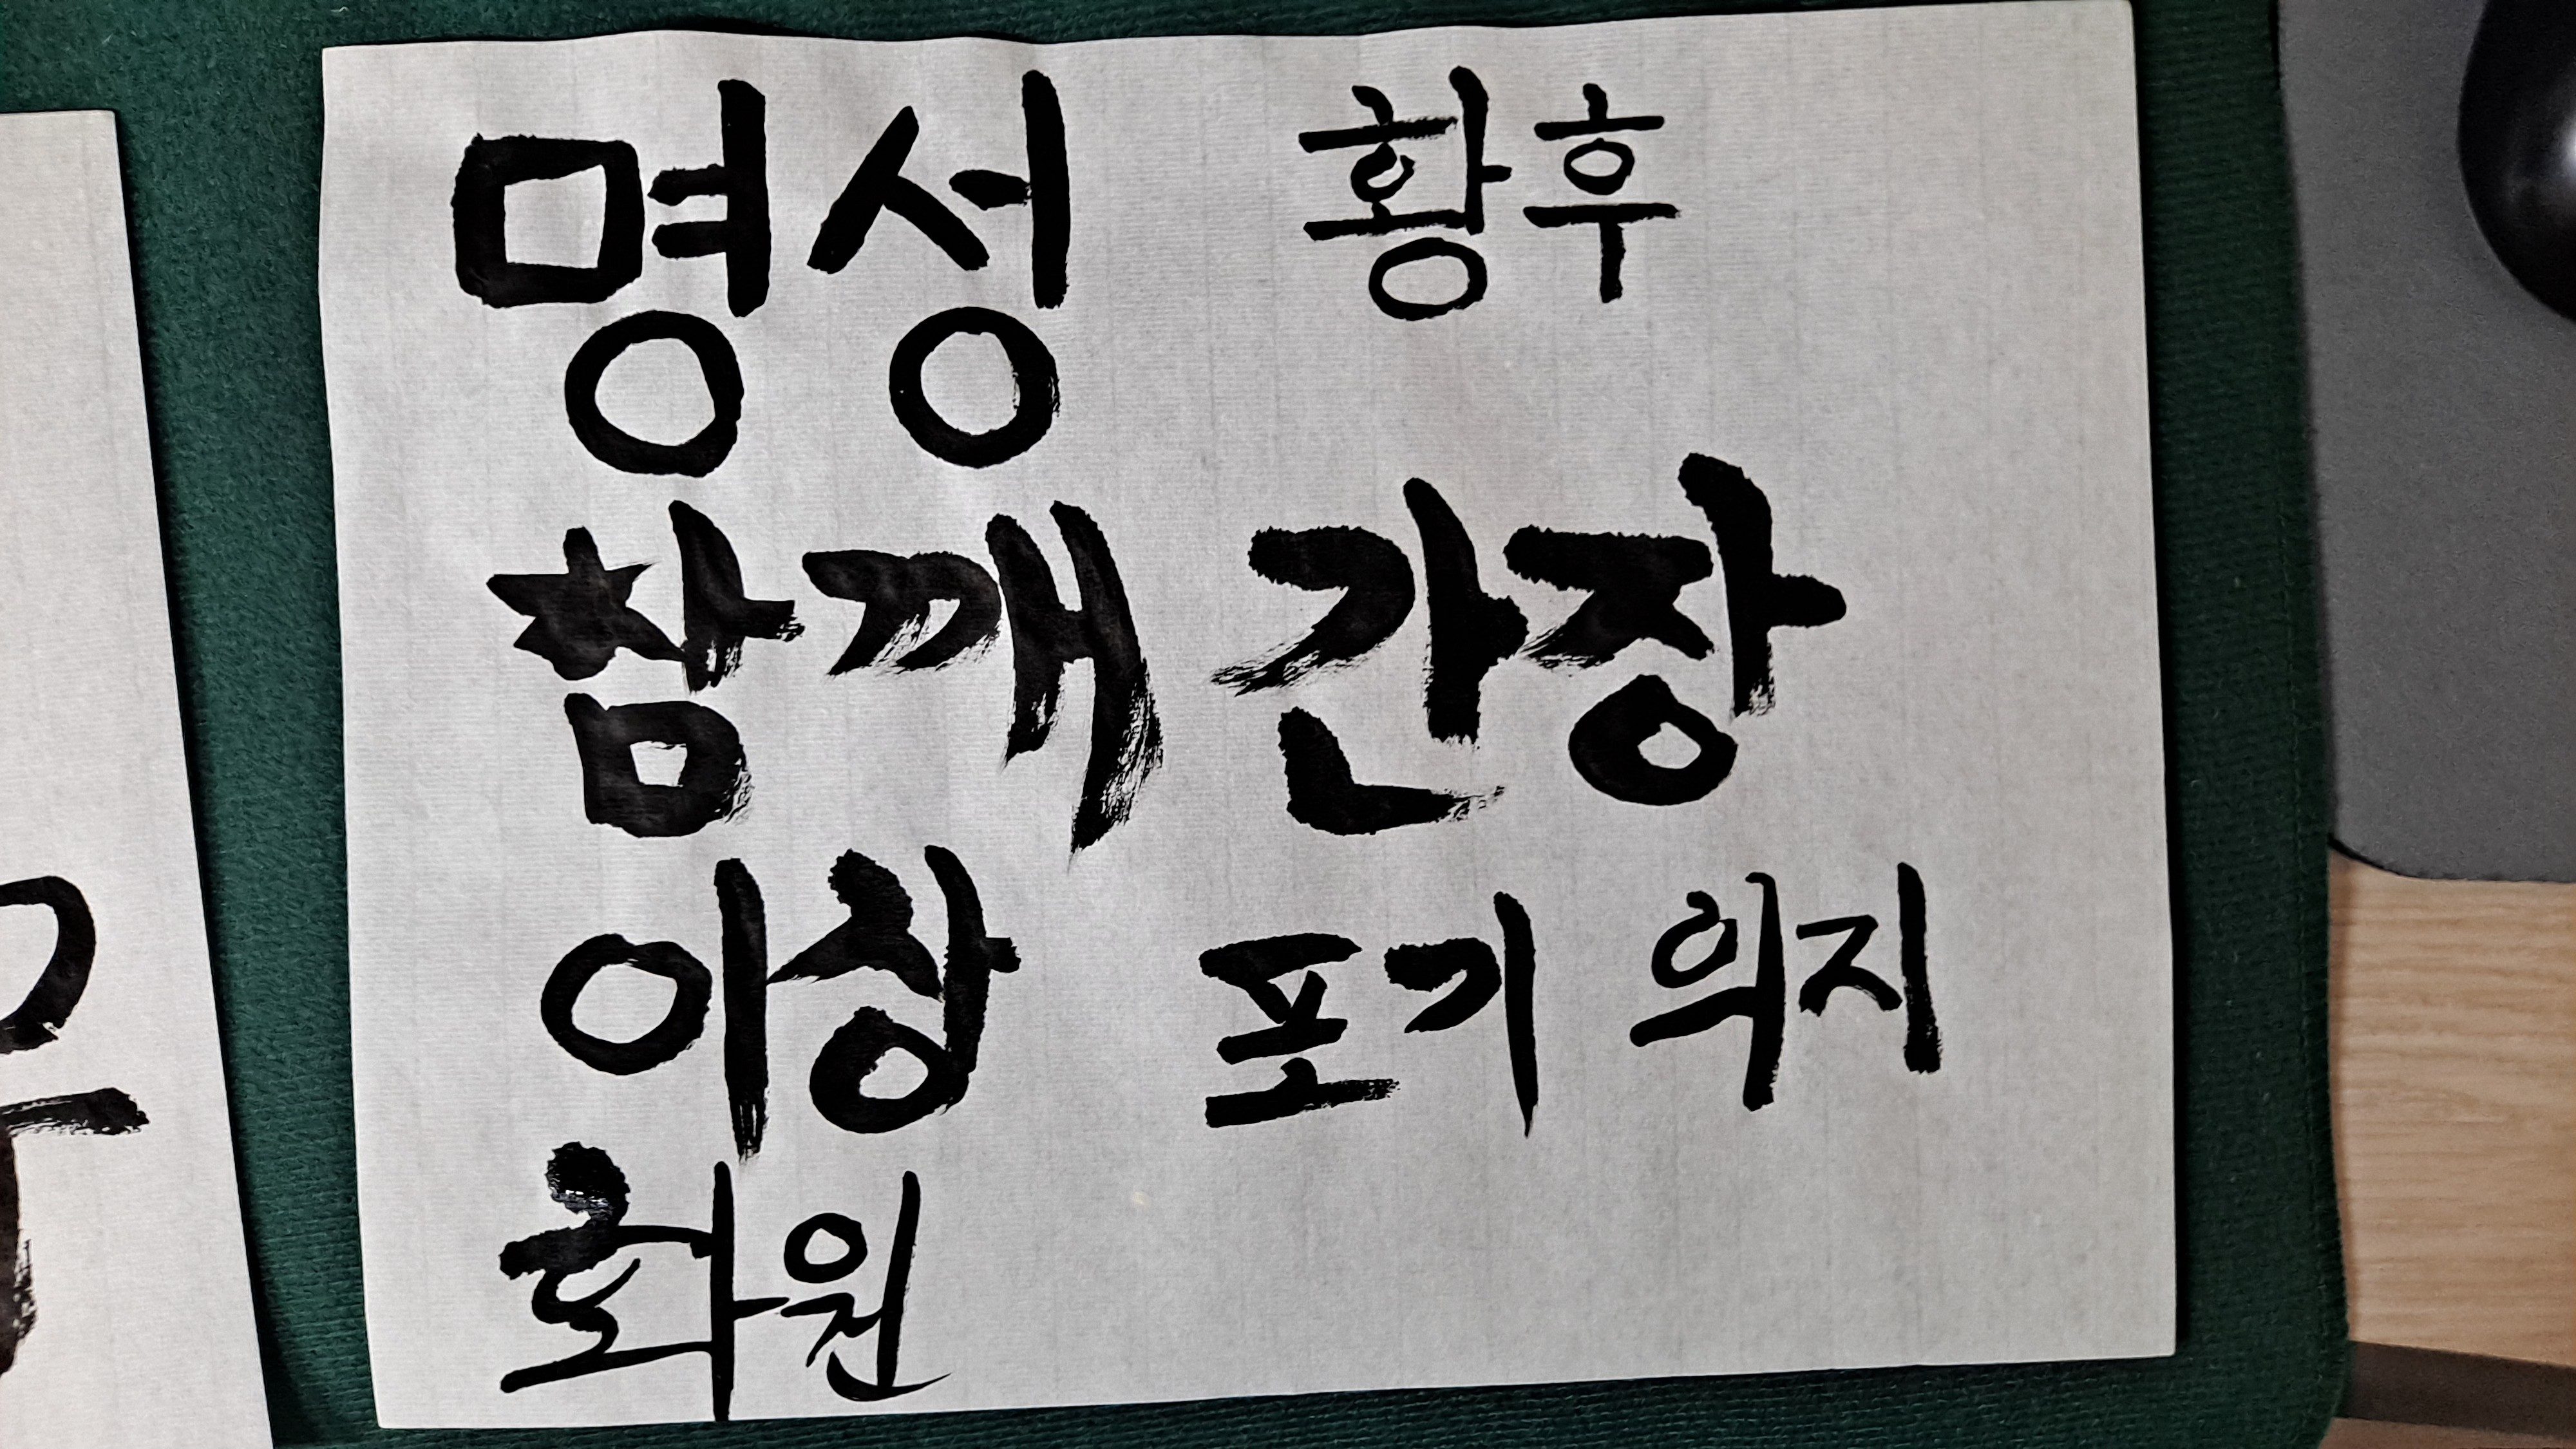 명성 황후
참깨 간장
이상 포기 의지
화원